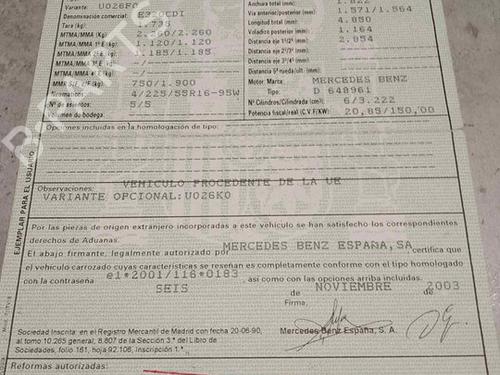 Variante: U026F0
Denominación comercial: E320CDI
Tara (kg): 1.735
MTMA/MMA (Kg): 2.260/2.260
MTMA/MMA 1ª E (kg): 1.120/1.120
MTMA/MMA 2ª E (kg): 1.185/1.185
MTMA/MMA 3ª E (kg):
MTMA/MMA 4ª E (kg):
750/1.900
4/225/55R16-95W
Nº de asientos: 5/5
Volumen de bodega:
Anchura total (mm): 1.822
Vía anterior/posterior (mm): 1.571/1.564
Longitud total (mm): 4.850
Voladizo posterior (mm): 1.164
Distancia eje 1º/2º (mm): 2.854
Distancia eje 2º/3º (mm):
Distancia eje 3º/4º (mm):
Distancia 5ª rueda/ult. (mm):
Motor: Marca: MERCEDES BENZ
Tipo: D 648961
Nº Cilindros/Cilindrada (cm³): 6/3.222
Potencia fiscal/real (C.V.F/KW): 20,85/150,00
Opciones incluidas en la homologación de tipo:
EJEMPLAR PARA EL USUARIO
Observaciones: VEHICULO PROCEDENTE DE LA UE
VARIANTE OPCIONAL:U026K0
Por las piezas de origen extranjero incorporadas a este vehículo se han satisfecho los correspondientes
derechos de Aduanas.
El abajo firmante, legalmente autorizado por MERCEDES BENZ ESPAÑA,SA certifica que
el vehículo carrozado cuyas características se reseñan es completamente conforme con el tipo homologado
con la contraseña e1*2001/116*0183, así como con las opciones arriba incluidas.
SEIS de NOVIEMBRE de 2003
Firma,
Sociedad Inscrita: en el Registro Mercantil de Madrid con fecha 20-06-90,
al tomo 10.265 general, 8.807 de la Sección 3.ª del Libro de
Sociedades, folio 161, hoja 92.106, Inscripción 1.ª
Mercedes Benz España, S. A.
Reformas autorizadas: